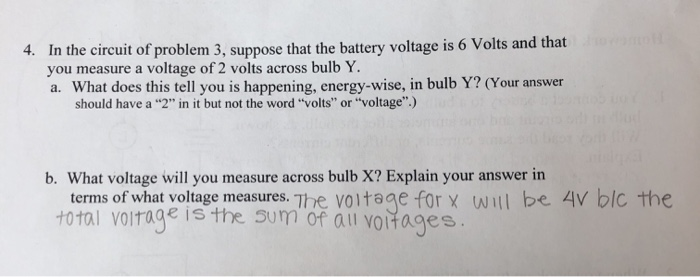 4. In the circuit of problem 3, suppose that the battery voltage is 6 Volts and that
you measure a voltage of 2 volts across bulb Y.
a. What does this tell you is happening, energy-wise, in bulb Y? (Your answer
should have a “2” in it but not the word “volts” or “voltage”.)
b. What voltage will you measure across bulb X? Explain your answer in
terms of what voltage measures. The voltage for x will be 4V b/c the
total voltage is the sum of all voltages.